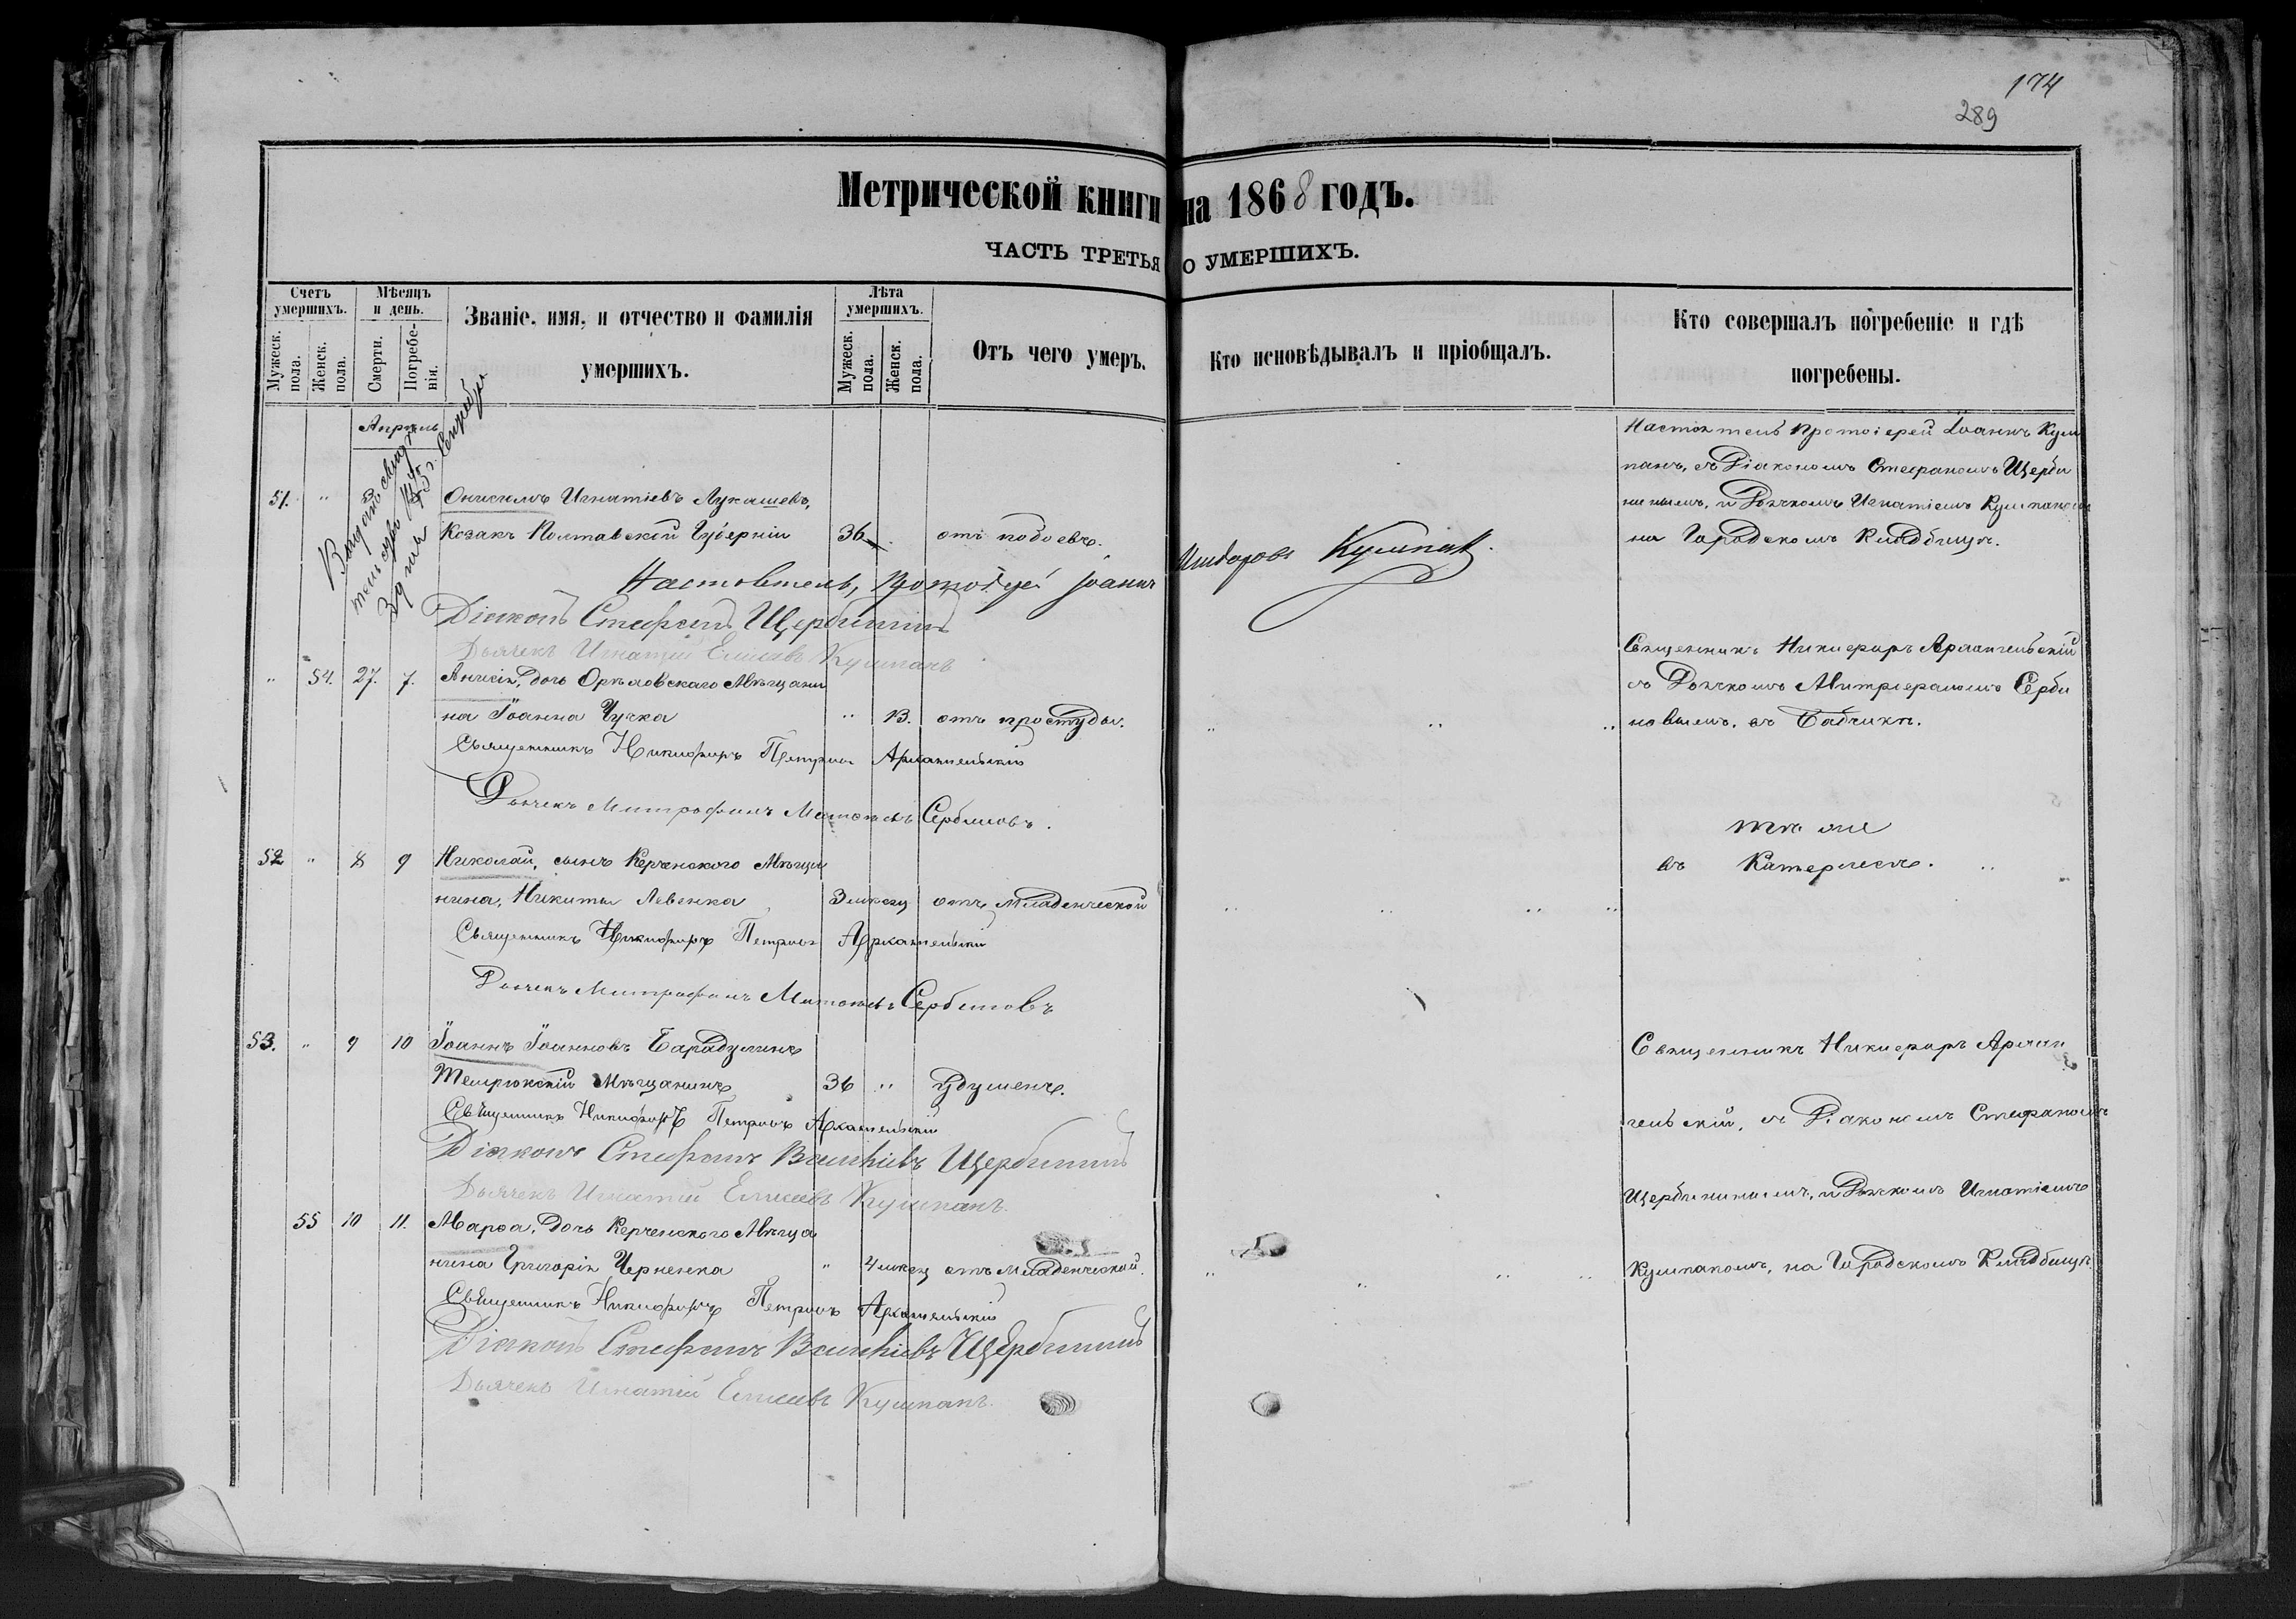 174
289
Метрической книги на 1868 годъ.
ЧАСТЬ ТРЕТЬЯ О УМЕРШИХЪ.
Счетъ умершихъ.
Мужеск. пола.
Женск. пола.
Мѣсяцъ и день.
Смерти.
Погребенія.
Званіе, имя, и отчество и фамилія умершихъ.
Лѣта умершихъ.
Мужеск. пола.
Женск. пола.
Отъ чего умеръ.
Кто исповѣдывалъ и пріобщалъ.
Кто совершалъ погребеніе и гдѣ погребены.
Апрѣль
51. " 3
Онисимъ Игнатіевъ Лукашевъ,
Козакъ Полтавской Губерніи 36 отъ побоевъ.
Настоятель Протоіерей Іоаннъ Кум
панъ, съ Діакономъ Стефаномъ Щерби
нинымъ, и Дьячкомъ Игнатіемъ Кумпаномъ
на Городскомъ Кладбищѣ.
Настоятель, Протоіерей Іоаннъ Кумпанъ
Діаконъ Стефанъ Щербининъ
Дьячекъ Игнатій Елисеевъ Кумпанъ
" 54. 27. 7. Анисія, дочь Орѣховскаго Мѣщани
на Іоанна Чучка " 13. отъ простуды. " " "
Священникъ Никифоръ Архангельскій
съ Дьячкомъ Митрофаномъ Серби
новымъ, въ Бабчикѣ.
Священникъ Никифоръ Петровъ Архангельскій
Дьячекъ Митрофанъ Сербиновъ.
52 " 8 9 Николай, сынъ Керченского Мѣща
нина, Никиты Левенка 3 мѣсяц отъ Младенческой " " " "
тѣ же
въ Катерлезѣ.
Священникъ Никифоръ Петровъ Архангельскій
Дьячекъ Митрофанъ Сербиновъ
53. " 9 10 Іоаннъ Іоанновъ Барадулинъ
Темрюкскій Мѣщанинъ 36 " удушенъ.
Священникъ Никифоръ Архан
гельскій, съ Діакономъ Стефаномъ
Щербининымъ, и Дьячкомъ Игнатіемъ
Кумпаномъ, на Городскомъ Кладбищѣ.
Священникъ Никифоръ Петровъ Архангельскій
Діаконъ Стефанъ Васильевъ Щербининъ
Дьячекъ Игнатій Елисеевъ Кумпанъ.
55 10 11. Марѳа, дочь Керченского Мѣща
нина Григорія Черненка " 4 мѣсяц отъ Младенческой. " " " "
Священникъ Никифоръ Петровъ Архангельскій
Діаконъ Стефанъ Васильевъ Щербининъ
Дьячекъ Игнатій Елисеевъ Кумпанъ.